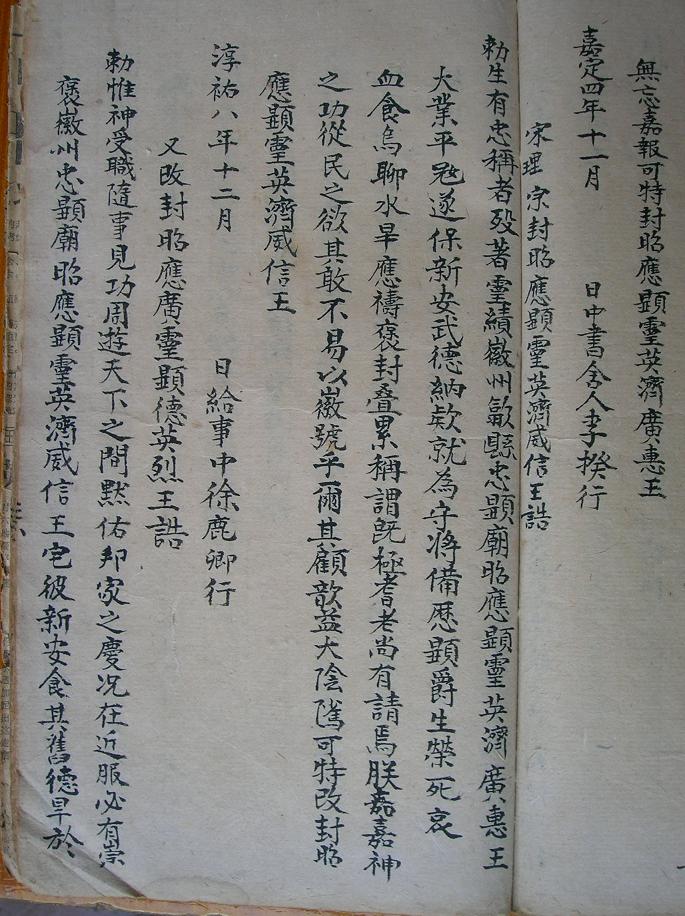 無忘嘉報可特封昭應顯靈英濟廣惠王
嘉定四年十一月 日中書舍人李揆行
宋理宗封昭應顯靈英濟威信王誥
勑生有忠稱者殁著靈績徽州歙縣忠顯廟昭應顯靈英濟廣惠王
大業平冦遂保新安武德納欵就為守將備歷顯爵生榮死哀
血食烏聊水旱應禱褒封叠累稱謂既極耆老尚有請焉朕嘉嘉神
之功從民之欲其敢不易以徽號乎爾其顧歆益大陰隲可特改封昭
應顯靈英濟威信王
淳祐八年十二月 日給事中徐鹿卿行
又改封昭應廣靈顯德英烈王誥
勑惟神受職隨事見功周遊天下之間黙佑邦家之慶况在近服必有崇
褒徽州忠顯廟昭應顯靈英濟威信王宅彼新安食其舊德旱於